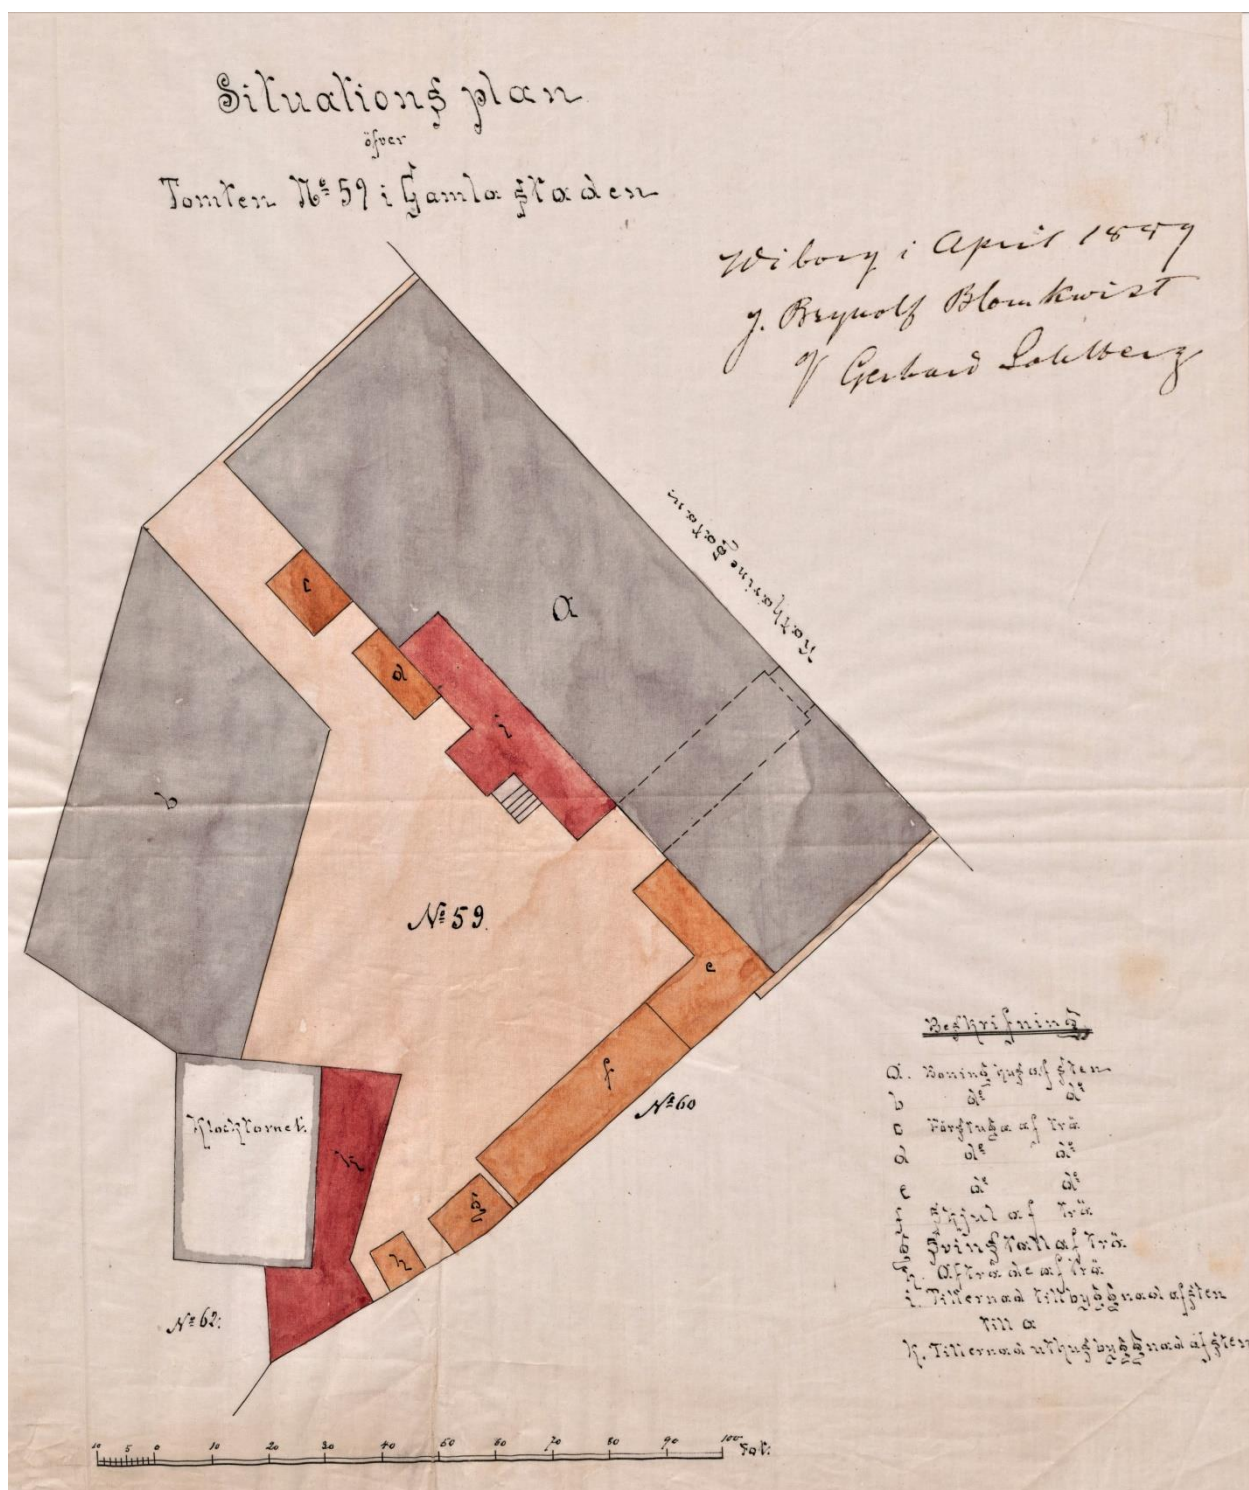 Situationsplan
öfver
Tomten No 59 i Gamla staden
Wiborg i April 1889
J. Brynolf Blomkwist
Gerhard
Katharine Gatan
a
b
c
d
e
f
g
h
i
k
No 59.
No 60
No 62:
Klocktornet.
Beskrifning
a. Boningshus af sten
b do do
c Förstuga af trä
d do do
e do do
f Skjul af trä
g Svinstall af trä
h. Afträde af trä
i. Tillernad tillbyggnad af sten
till a
k. Tillernad uthusbyggnad af sten
10 5 0 10 20 30 40 50 60 70 80 90 100 Fot: